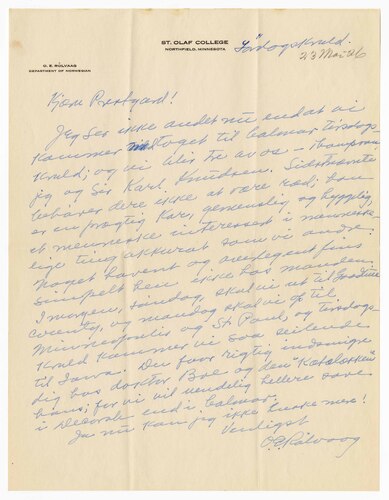 ST. OLAF COLLEGE
NORTHFIELD, MINNESOTA
O. E. RÖLVAAG
DEPARTMENT OF NORWEGIAN
Lördagskveld.
23 Mar 26
Kjære Prestgard!
Jeg ser ikke andet nu end at vi
kommer med toget til Calmar tirsdags
kveld; og vi blir tre av os – Thompson
jeg og Sir Karl Knudsen. Sidstnævnte
behöver dere ikke at være räd; han
er en prægtig kar, gemenslig og hyggelig,
et menneske interessert i menneske-
lige ting akkurat som vi andre.
Noget hovent og overlegent fins
simpelt hen ikke hos manden.
I morgen, söndag, skal vi ut til Goodhue
county, og mandag skal vi op til
Minneapolis og St. Paul, og tirsdags
kveld kommer vi saa seilende
til Iowa. Du faar rigtig indsmigre
dig hos doktor Boe og den "Katolikken"
hans; for vi vil nendelig hellere sove
i Decorah end i Calmar.
Ja nu kan jeg ikke huske mere!
Venligst
O E Rölvaag